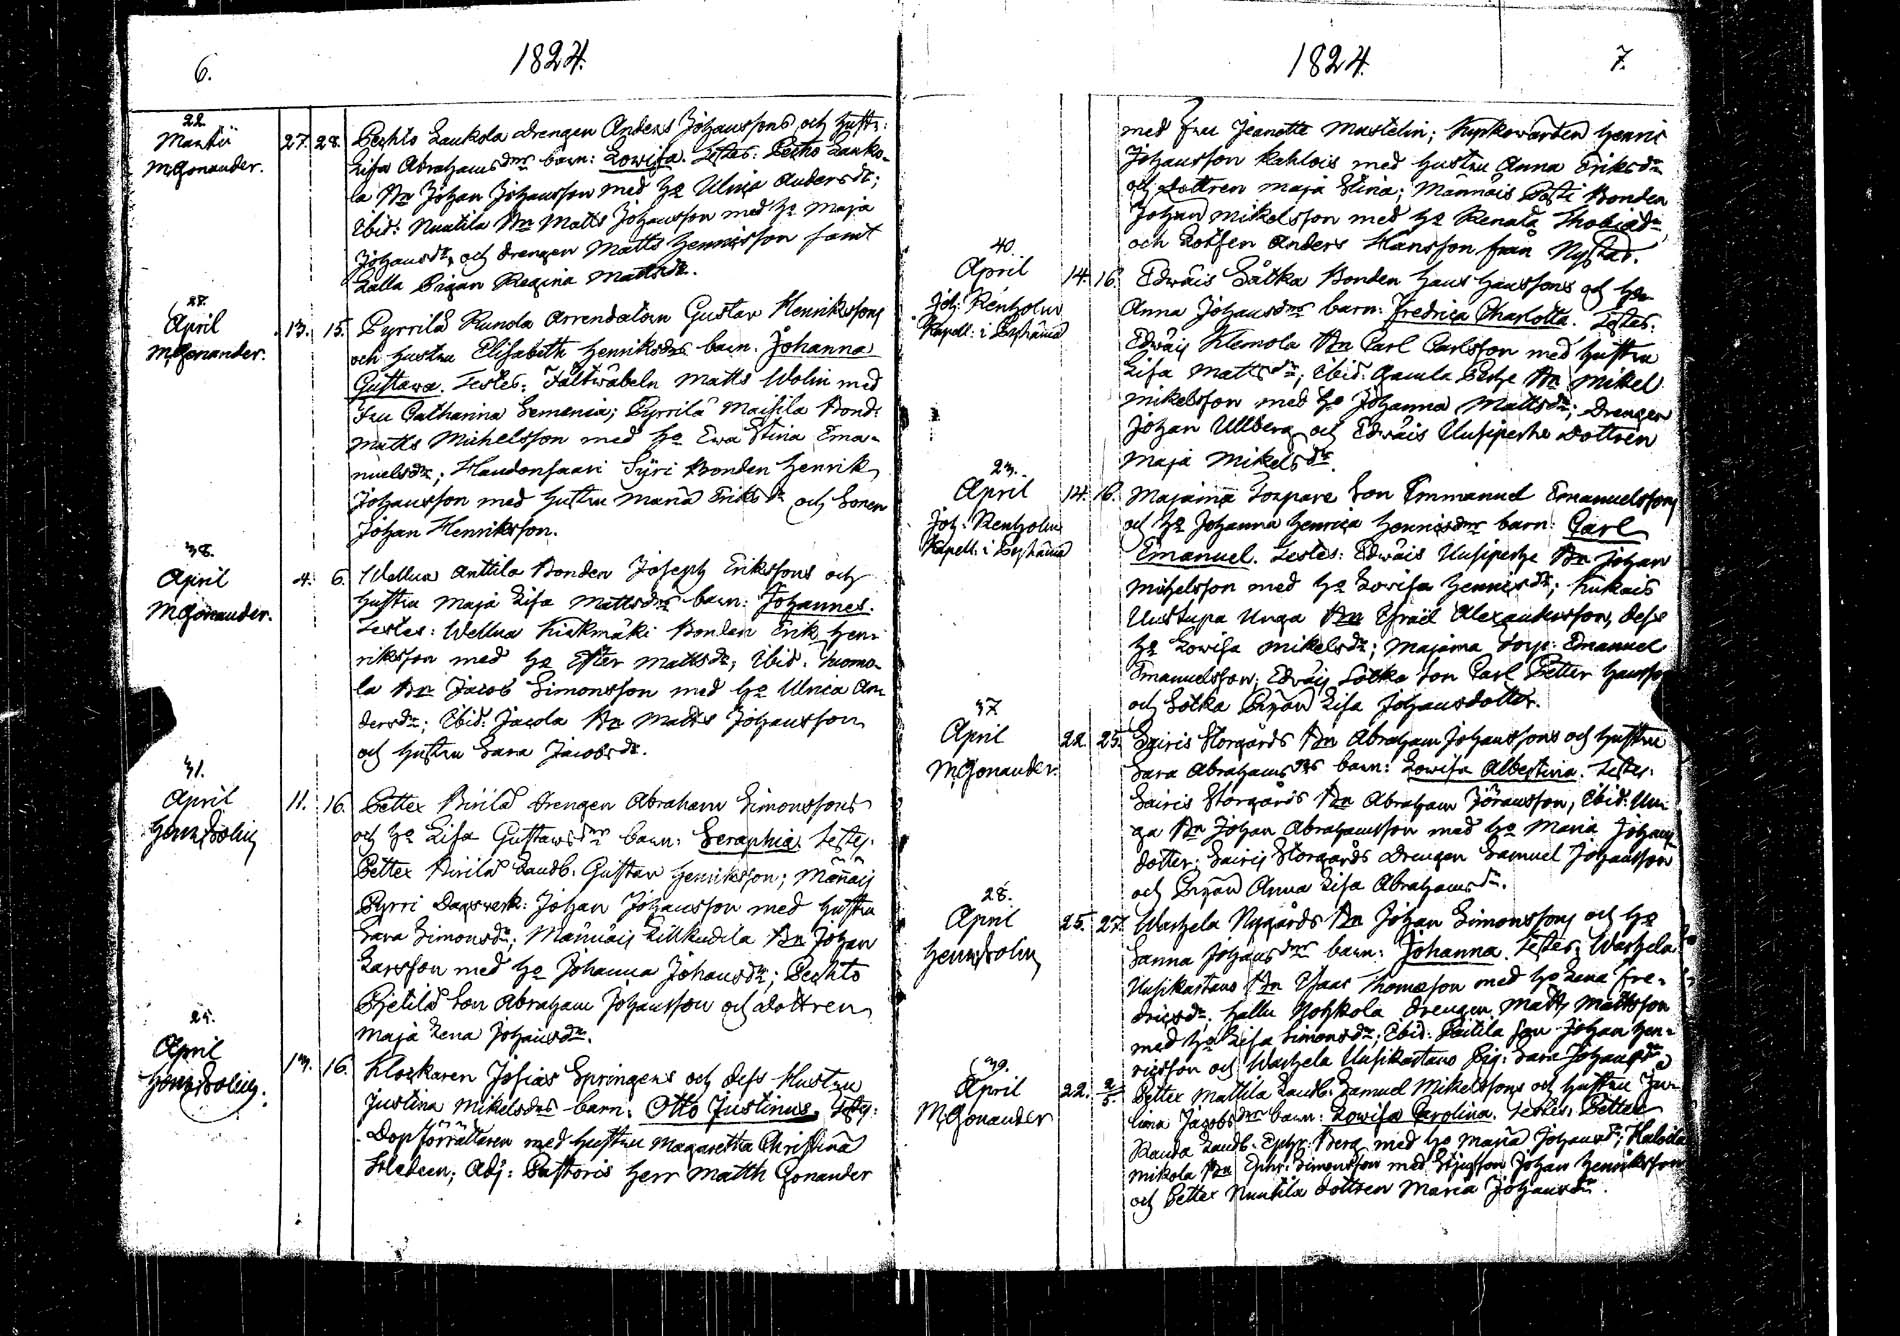 6.
1824.
22.
Martii
M. Gonander.
27. 28. Pechto Laukola drengen Anders Johanssons och hustr:
Lisa Abrahams dr barn: Lovisa. Testes: Pechto Lauko-
la Bn Johan Johansson med ho Ulrica Andersdr;
Ibid: Nuutila Bn Matts Johansson med ho Maja
Johansdr, och drengen Matts Henricsson samt
Lalla Pigan Regina Mattsdr.
April
M. Gonander.
13. 15. Pyrrilä Runola Arrendatorn Gustav Henrikssons
och hustru Elisabeth Henriksdrs barn. Johanna
Gustava. Testes: Fältwäbeln Matts Wolin med
Fru Catharina Semenia; Pyrrilä Maisila Bond:
Matts Michelsson med ho Ewa Stina Ema-
nuelsdr; Haudonsaari Syri Bonden Henrik
Johansson med hustru Maria Eriksdr och Sonen
Johan Henriksson.
38.
April
M. Gonander.
4. 6. Wellua Anttila Bonden Joseph Erikssons och
hustru Maja Lisa Mattsdrs barn: Johannes.
Testes: Wellua Kiakmäki Bonden Erik Hen-
riksson med ho Ester Mattsdr; Ibid. Tuomo-
la Bn Jacob Simonsson med ho Ulrica An-
dersdr; Ibid: Jacola Bn Matts Johansson
och hustru Sara Jacobsdr.
31.
April
Henr. Bolin
11. 16. Pettex Pirilä drengen Abraham Simonssons
och ho Lisa Gustavsdrs barn: Seraphia. Testes:
Pettex Pirilä Landb: Gustav Henriksson; Männäis
Pyrri Dagsverk: Johan Johansson med hustru
Sara Simonsdr; Männäis Lillkudila Bn Johan
Larsson med ho Johanna Johansdr; Pechto
Pietilä Son Abraham Johansson och dottren
Maja Lena Johansdr.
25.
April
Henr. Bolin.
13. 16. Klockaren Josias Springers och dess Hustru
Justina Mikelsdrs barn: Otto Justinus. Testes:
Dopförrättaren med hustru Magaretha Christina
Adj: Pastoris Herr Matth Gonander
1824.
7.
med Fru Jeanette Mastelin; Kyrkowärden Henric
Johansson Kahlois med hustru Anna Eriksdr
och dottren Maja Stina; Männäis Pasti Bonden
Johan Mikelsson med ho Renata Thobiadr,
och Lotsen Anders Hansson från Nystad.
40.
April
Joh: Renholm
Kapell: i Pyhämaa
14. 16. Edwäis Sätka Bonden Hans Hanssons och ho
Anna Johansdrs barn: Fredrica Charlotta. Testes:
Edwäis Klemola Bn Carl Carlsson med hustru
Lisa Mattsdr; Ibid. Gamla Bn Mikel
Mikelsson med ho Johanna Mattsdr; drengen
Johan Ullberg och Edwäis Uusiperhe dottren
Maja Mikelsdr.
23.
April
Joh: Renholm
Kapell: i Pyhämaa
14. 16. Majaina Torpare Son Emmanuel Emanuelssons
och ho Johanna Henrica Henricsdrs barn: Carl
Emanuel. Testes: Edwäis Uusiperhe Bn Johan
Mikelsson med ho Lovisa Henricsdr; Kukais
Uustupa Unga Bn Israël Alexandersson, dess
ho Lovisa Mikelsdr; Majaina Torp: Emanuel
Emanuelsson; Edwäis Sätka Son Carl Petter Hansson
och Sätka Pigan Lisa Johansdotter.
37
April
M. Gonander.
22. 25. Sairis Storgårds Bn Abraham Johanssons och hustru
Sara Abrahamsdrs barn: Lovisa Albertina. Testes:
Sairis Storgårds Bn Abraham Jöransson, Ibid: Un-
ga Bn Johan Abrahamsson med ho Maria Johans
dotter; Sairis Storgårds drengen Samuel Johansson
och Pigan Anna Lisa Abrahamsdr.
28.
April
Henr. Bolin
25. 27. Warhela Nygårds Bn Johan Simonssons och ho
Sanna Johansdrs barn: Johanna. Testes: Warhela
Uusikartano Bn Isaac Thomasson med ho Lena Fre-
dricsdr; Hallu Nohkola drengen Matts Mattsson
med ho Lisa Simonsdr; Ibid: Paitila Son Johan Hen-
ricsson och Warhela Uusikartano Pig: Sara Johansdr
39.
April
M. Gonander
22. 2/5. Pettex Mattila Landb: Samuel Mikelssons och hustru Ju-
liana Jacobsdrs barn: Lovisa Carolina. Testes: Pettex
Rauda Landb. Ephr: Berg med ho Maria Johansdr;
Mikola Bn Ephr: Simonsson med Johan Henriksson
och Pettex Nuutila dottren Maria Johansdr.